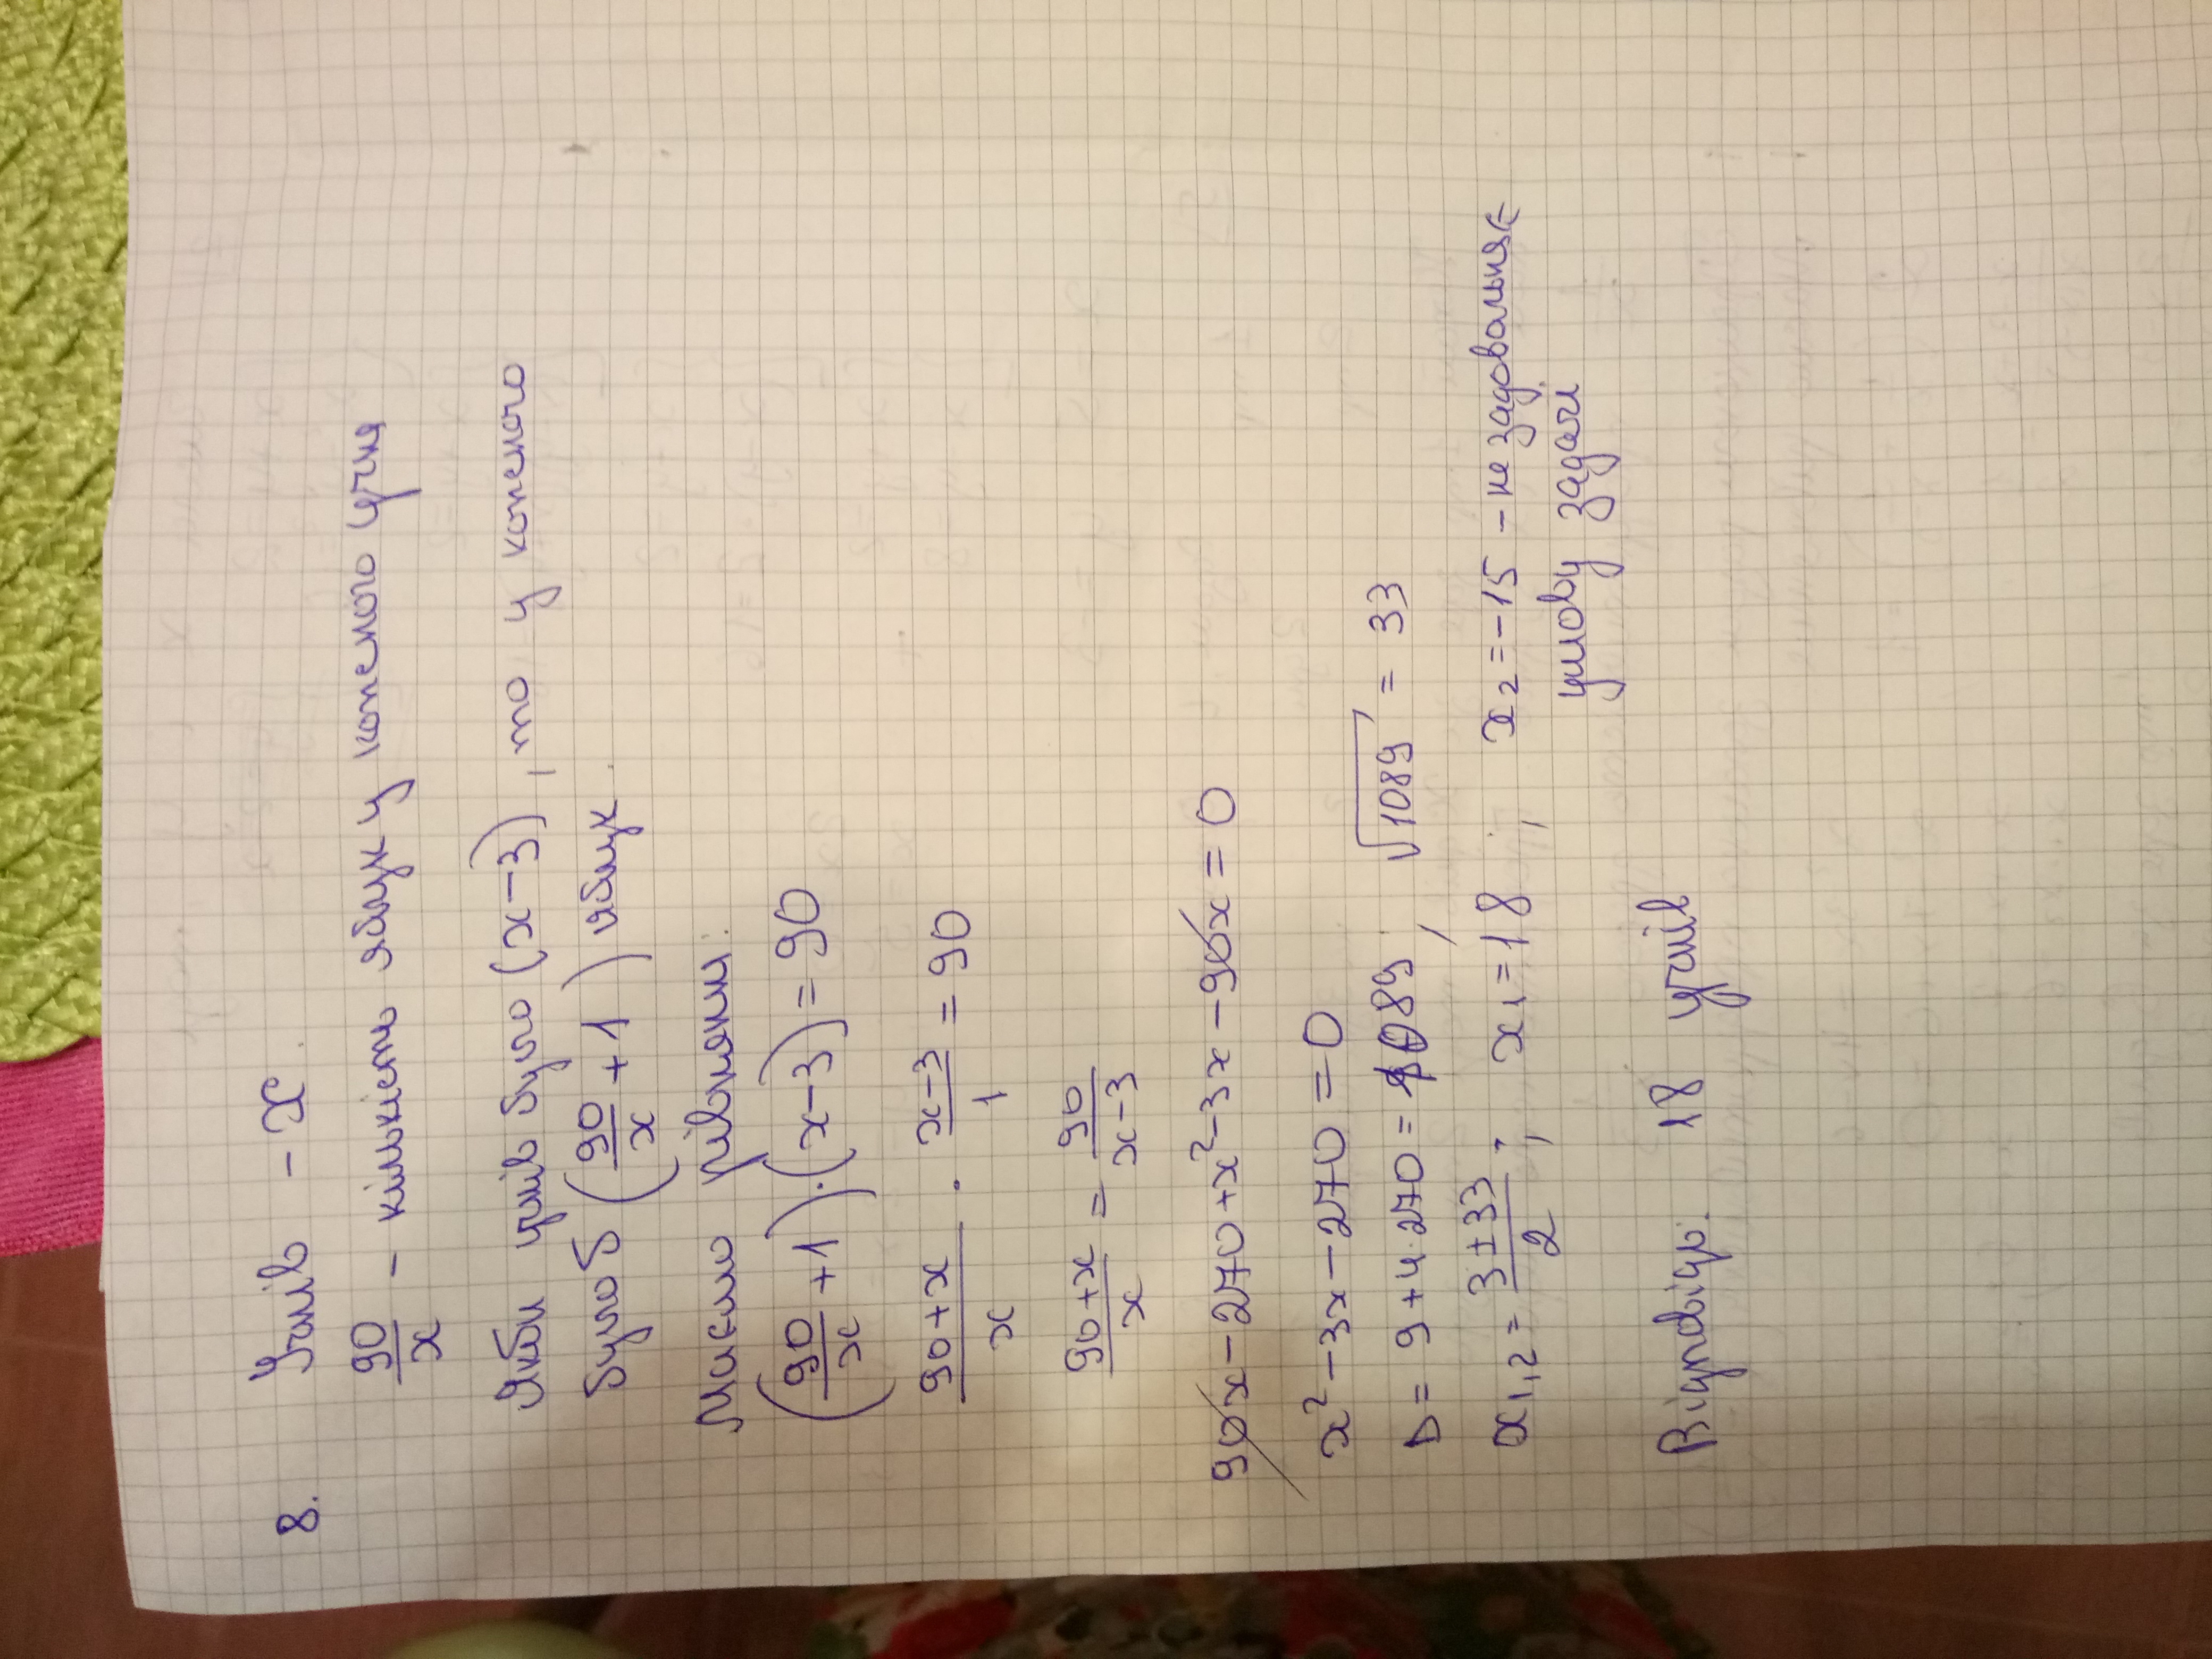 8. Учнів - x
90/x - кількість яблук у кожного учня
Якби учнів було (x-3), то у кожного
було б (90/x + 1) яблук.
Маємо рівняння:
(90/x + 1)·(x-3) = 90
90+x/x · x-3/1 = 90
90+x/x = 90/x-3
90x - 270 + x² - 3x - 90x = 0
x² - 3x - 270 = 0
D = 9 + 4·270 = 1089, √1089 = 33
x₁,₂ = 3±33/2; x₁ = 18; x₂ = -15 - не задовольняє
умову задачі
Відповідь. 18 учнів